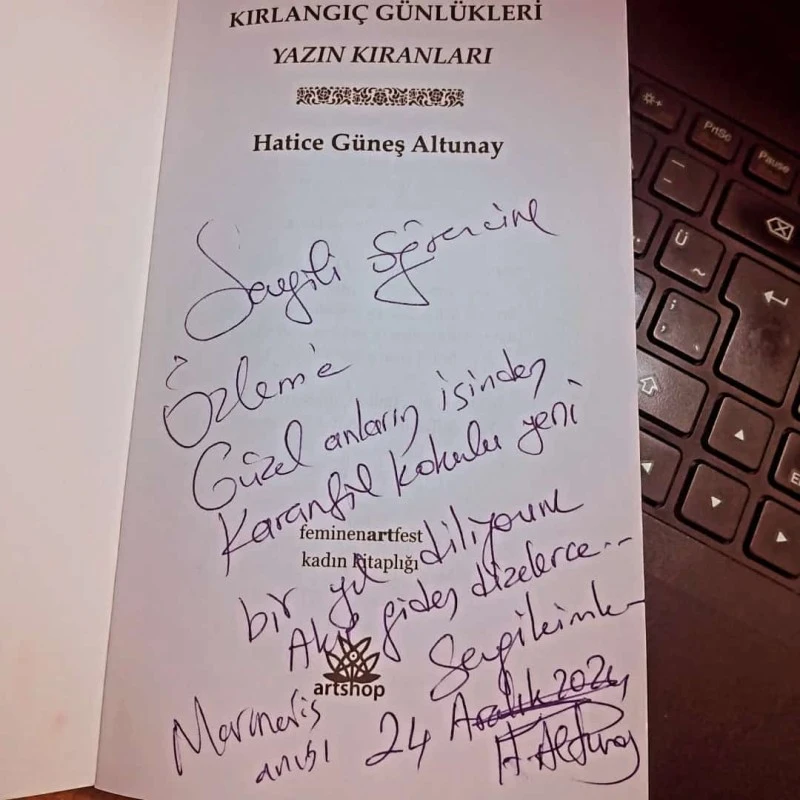 KIRLANGIÇ GÜNLÜKLERİ
YAZIN KIRANLARI
Hatice Güneş Altunay
Sevgili öğrencime
Özlem'e
Güzel anların isinden
Karanfil kokulu yeni
bir yıl diliyorum
Akıp giden dizelerce...
Sevgilerimle
Marmaris
anısı
24 Aralık 2024
H. Altunay
feminenartfest
kadın kitaplığı
artshop
PrtSc
Pause
Ü
~